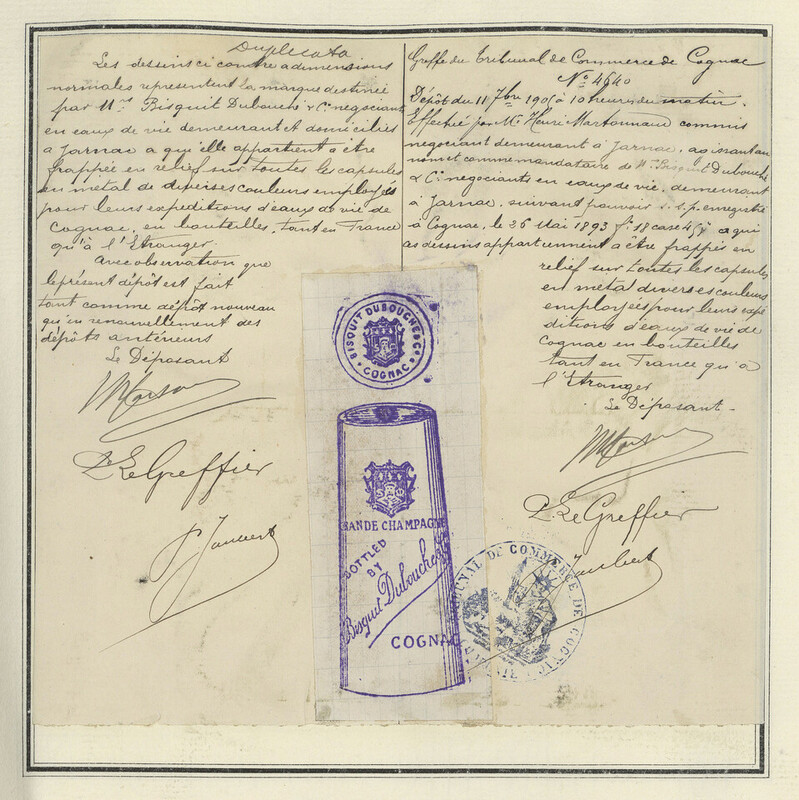 Duplicata
Les dessins ci contre a dimensions
normales représentent la marque destinée
par Mrs Bisquit Dubouché & Cie négociants
en eaux de vie demeurant et domiciliés
à Jarnac a qu'elle appartient à être
frappée en relief sur toutes les capsules
en métal de diverses couleurs employées
pour leurs expéditions d'eaux de vie de
Cognac, en bouteilles, tant en France
qu'à l'Etranger.
Avec observation que
le présent dépôt est fait
tant comme dépôt nouveau
qu'en renouvellement des
dépôts antérieurs
Le Déposant
Le Greffier
Greffe du Tribunal de Commerce de Cognac
No 4640
Dépôt du 11 7bre à 10 heures du matin.
Effectué par Mr Henri commis
négociant demeurant à Jarnac, agissant au
nom et comme mandataire de Mrs Bisquit Dubouché
& Cie négociants en eaux de vie, demeurant
à Jarnac, suivant pouvoir s.s.p. enregistré
à Cognac, le 26 Mai 1893 fo 18 case a qui
les dessins appartiennent à être frappés en
relief sur toutes les capsules
en métal diverses couleurs
employées pour leurs expé
ditions d'eaux de vie de
Cognac en bouteilles
tant en France qu'à
l'Etranger
Le Déposant
Le Greffier
BISQUIT DUBOUCHE & Co
COGNAC
GRANDE CHAMPAGNE
BOTTLED
BY
Bisquit Dubouché & Co
COGNAC
TRIBUNAL DE COMMERCE DE COGNAC